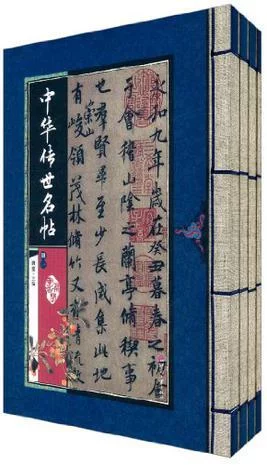 中华传世名帖
永和九年歲在癸丑暮春之初會
于會稽山陰之蘭亭脩稧事
也群賢畢至少長咸集此地
有崇山峻領茂林脩竹又有清流激